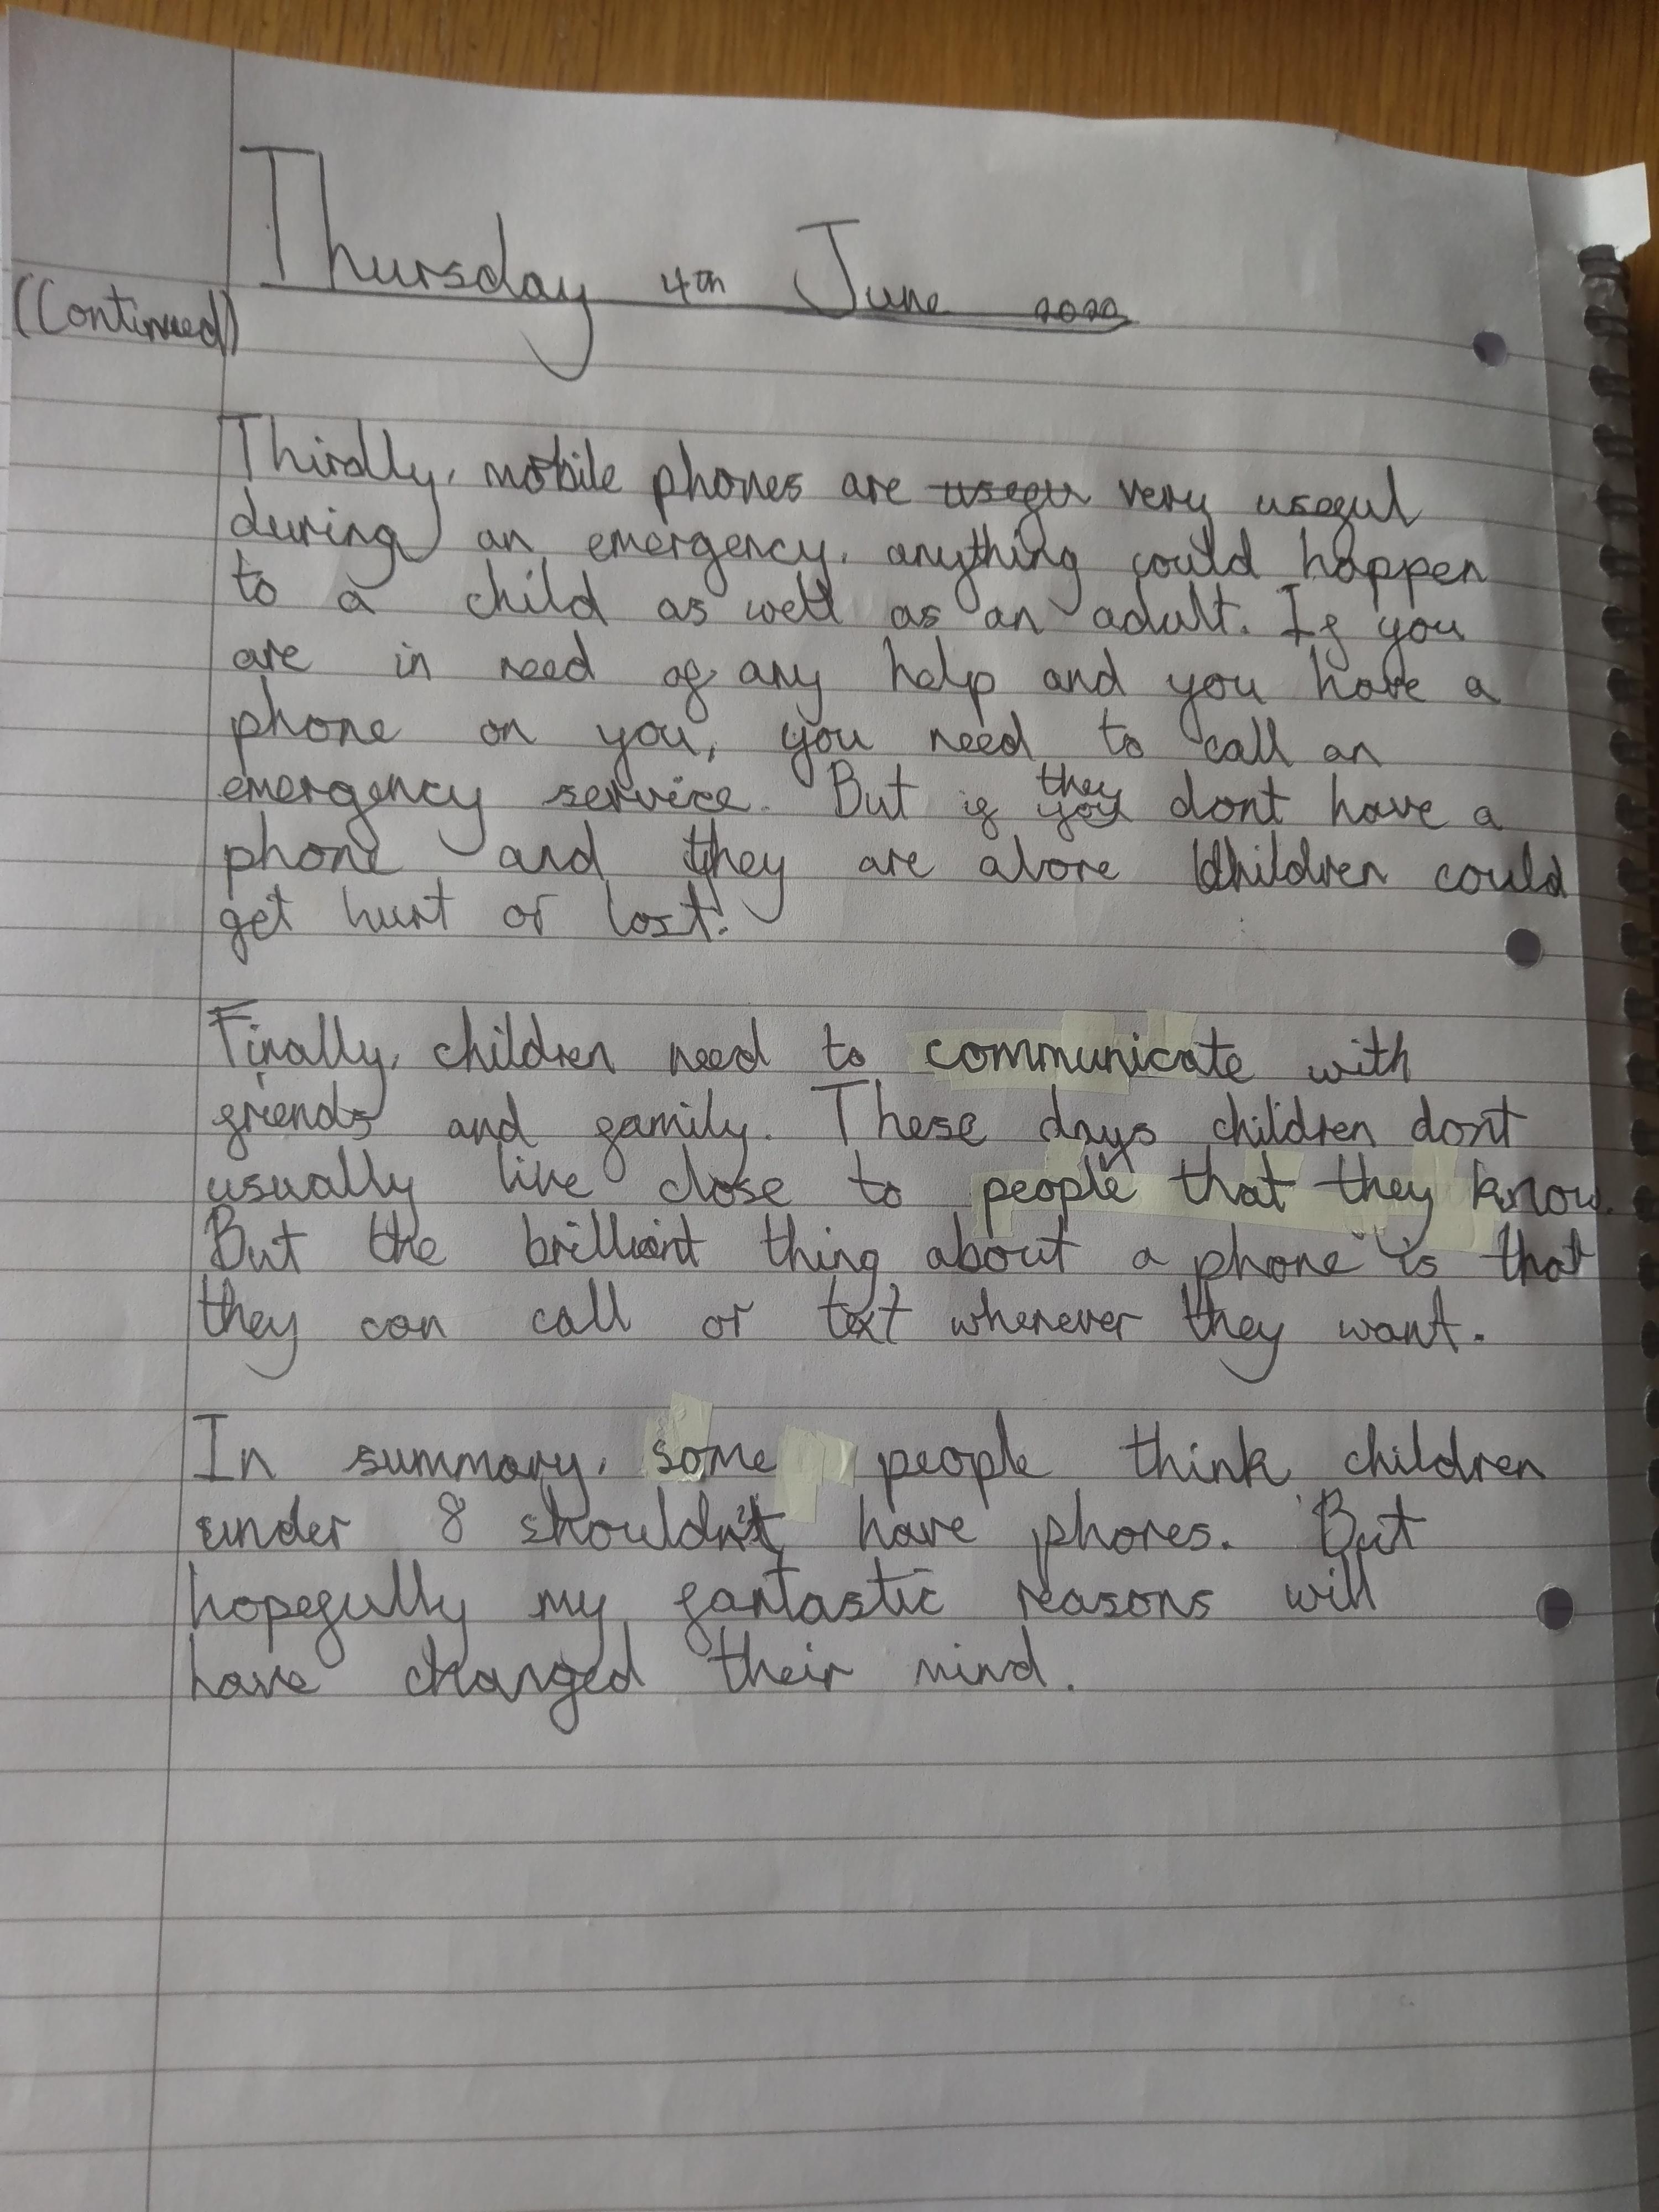 Thursday 4th June 2020
(Continued)
Thirdly, mobile phones are usefu very useful
during an emergency. anything could happen
to a child as well as an adult. If you
are in need of any help and you have a
phone on you, you need to call an
emergency service. But if they dont have a
phone and they are alone children could
get hurt or lost.
Finally, children need to communicate with
friends and family. These days children dont
usually live close to people that they know.
But the brilliant thing about a phone is that
they can call or text whenever they want.
In summary, some people think children
under 8 shouldn't have phones. But
hopefully my fantastic reasons will
have changed their mind.